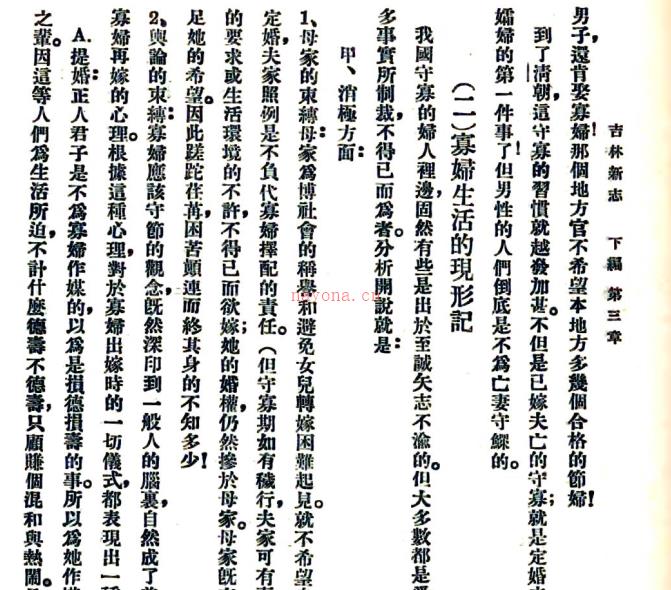 吉林新志 下編 第三章
男子，還肯娶寡婦！那個地方官不希望本地方多幾個合格的節婦！
到了淸朝，這守寡的習慣就越發加甚。不但是已嫁夫亡的守寡；就是定婚
孀婦的第一件事了！但男性的人們倒底是不爲亡妻守鰥的。
（二）寡婦生活的現形記
我國守寡的婦人裡邊，固然有些是出於至誠矢志不渝的。但大多數都是
多事實所制裁，不得已而爲者。分析開說就是：
甲、消極方面：
1、母家的束縛：母家爲博社會的稱譽和避免女兒轉嫁困難起見。就不希望
定婚，夫家照例是不負代寡婦擇配的責任。（但守寡期如有穢行，夫家可有
的要求或生活環境的不許，不得已而欲嫁；她的婚權仍然摻於母家。母家旣
足她的希望。因此蹉跎荏苒，困苦顚連而終其身的不知多少！
2、輿論的束縛：寡婦應該守節的觀念，旣然深印到一般人的腦裏，自然成了
寡婦再嫁的心理。根據這種心理，對於寡婦出嫁時的一切儀式，都表現出一種
A. 提婚：正人君子是不爲寡婦作媒的，以爲是損德損壽的事。所以爲她作媒
之輩。因這等人們爲生活所迫，不計什麼德壽不德壽，只顧賺個混和與熱鬧。
nayona.cn